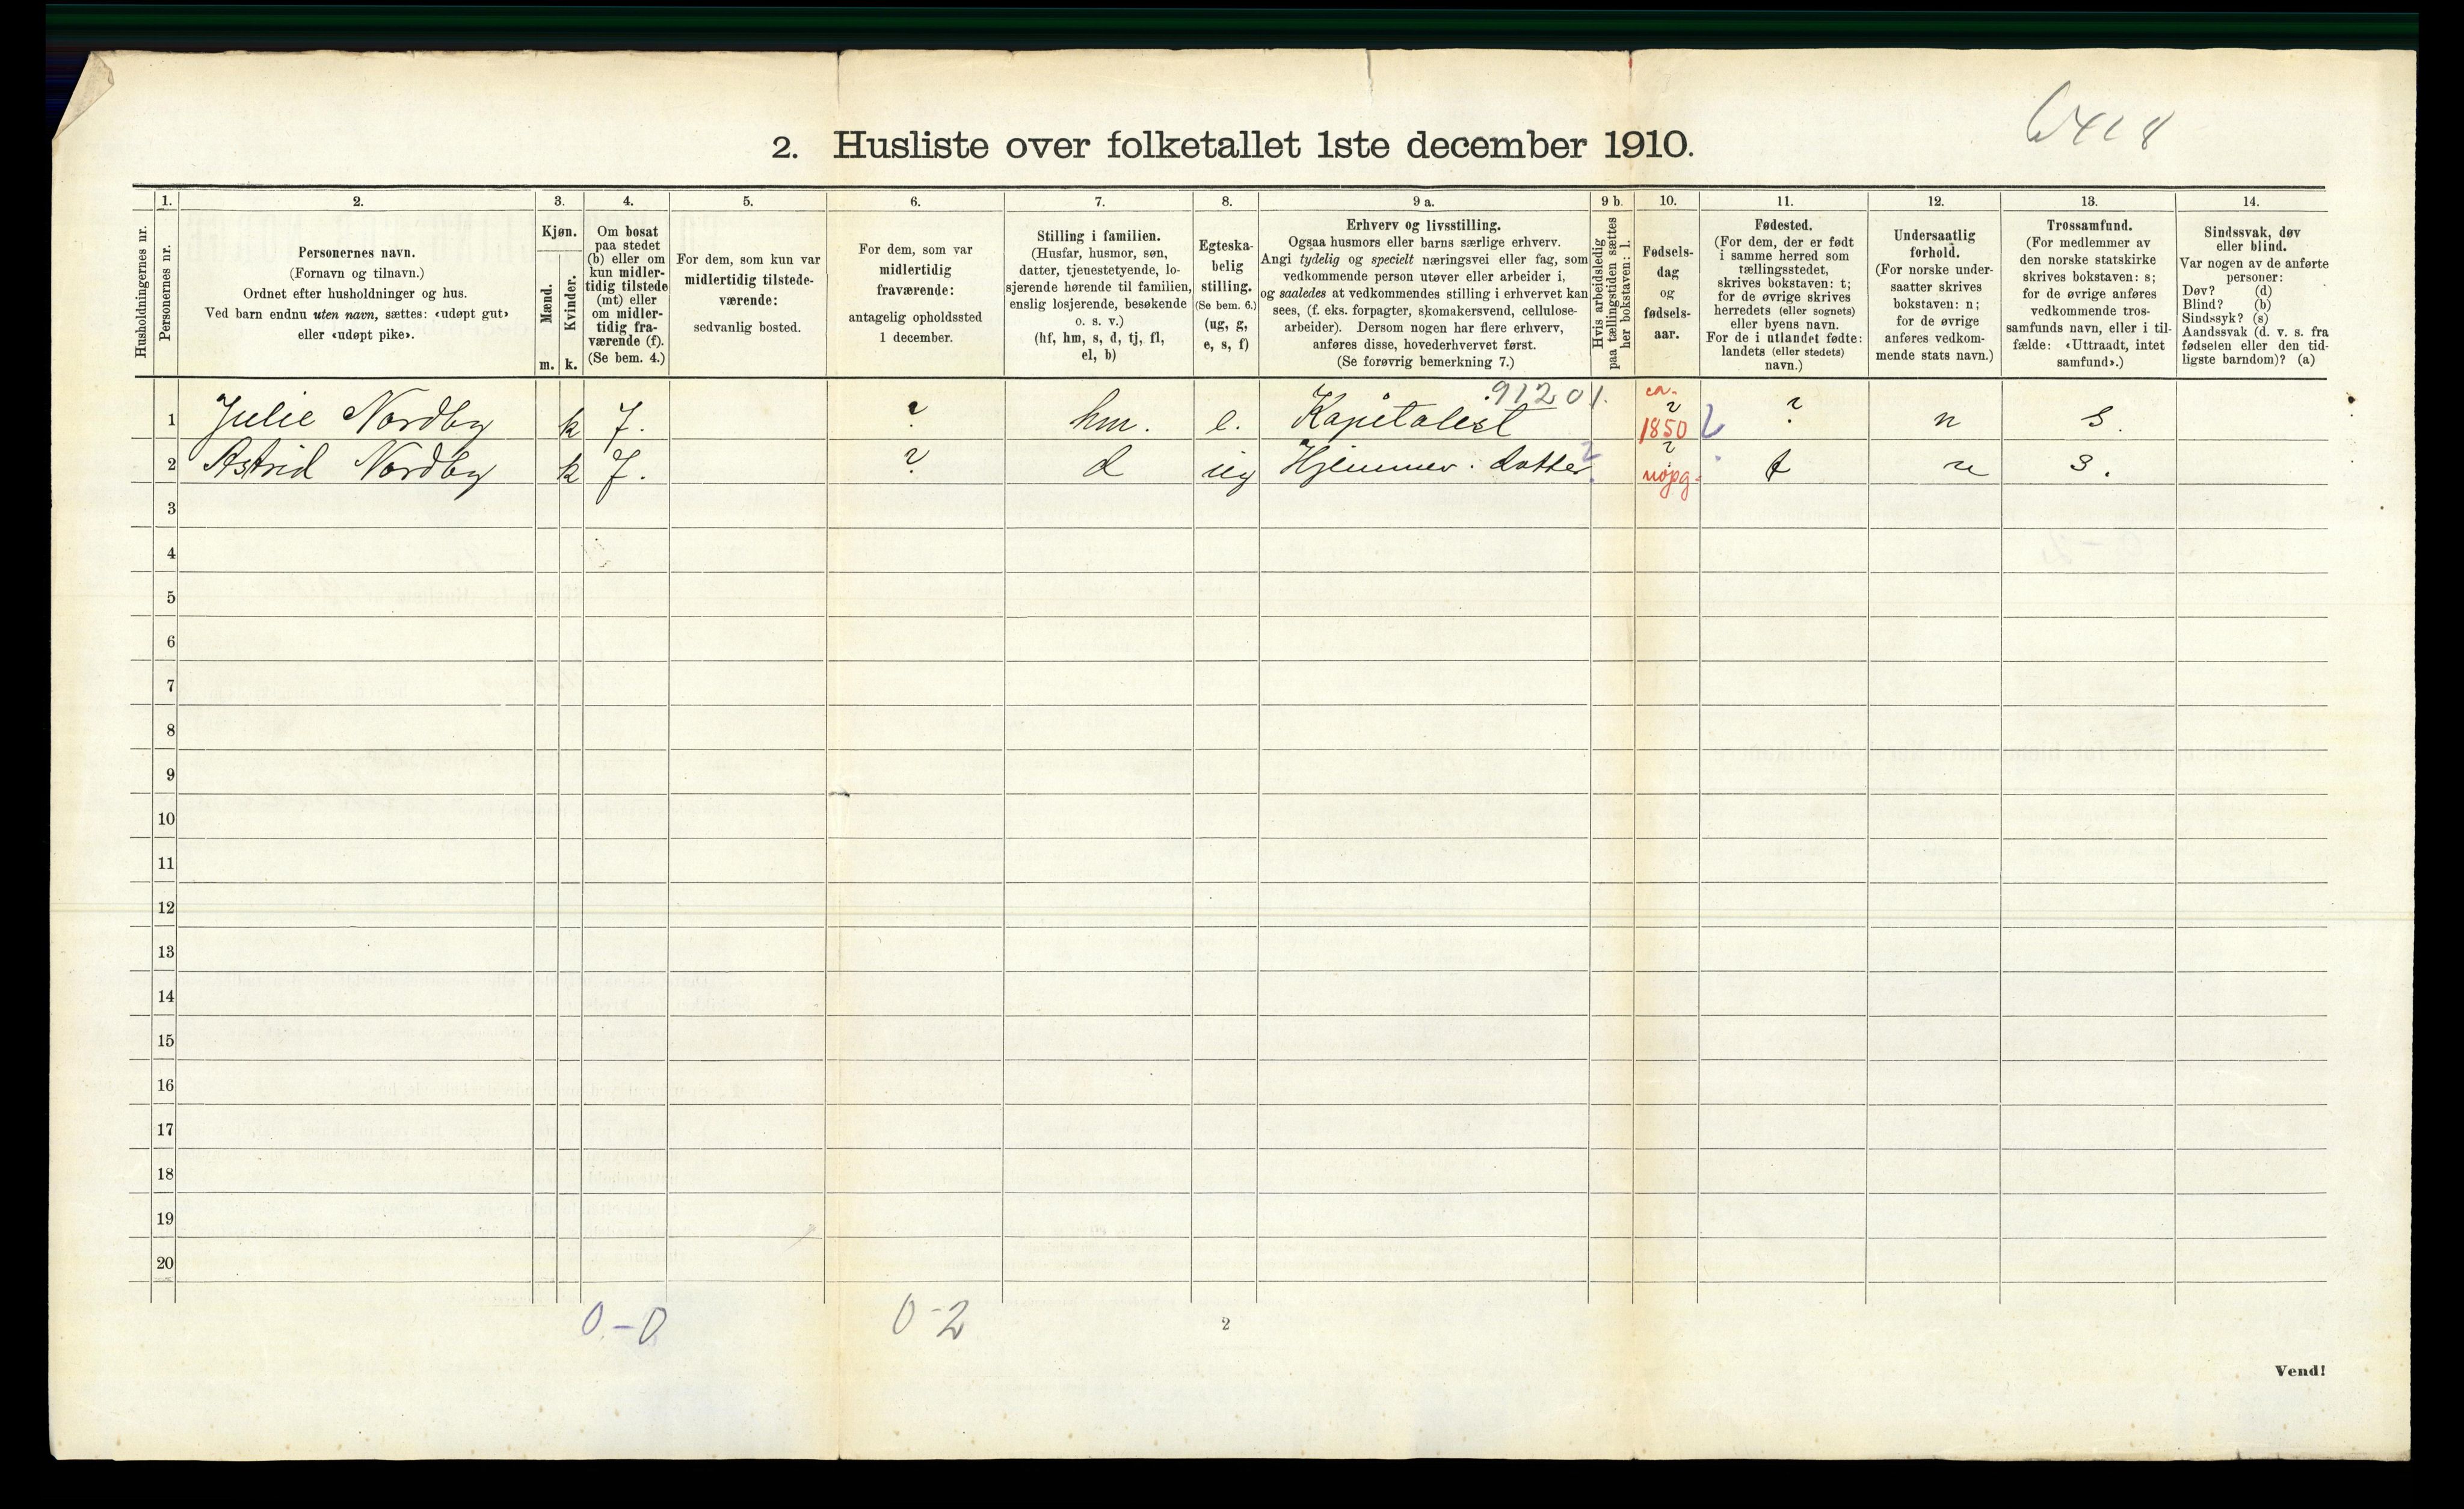 2. Husliste over folketallet 1ste december 1910.
Husholdningernes nr.
1.
Personernes nr.
2.
Personernes navn.
(Fornavn og tilnavn.)
Ordnet efter husholdninger og hus.
Ved barn endnu uten navn, sættes: «udøpt gut»
eller «udøpt pike».
3.
Kjøn.
Mænd.
Kvinder.
m. k.
4.
Om bosat
paa stedet
(b) eller om
kun midler-
tidig tilstede
(mt) eller
om midler-
tidig fra-
værende (f).
(Se bem. 4.)
5.
For dem, som kun var
midlertidig tilstede-
værende:
sedvanlig bosted.
6.
For dem, som var
midlertidig
fraværende:
antagelig opholdssted
1 december.
7.
Stilling i familien.
(Husfar, husmor, søn,
datter, tjenestetyende, lo-
sjerende hørende til familien,
enslig losjerende, besøkende
o. s. v.)
(hf, hm, s, d, tj, fl,
el, b)
8.
Egteska-
belig
stilling.
(Se bem. 6.)
(ug, g,
e, s, f)
9 a.
Erhverv og livsstilling.
Ogsaa husmors eller barns særlige erhverv.
Angi tydelig og specielt næringsvei eller fag, som
vedkommende person utøver eller arbeider i,
og saaledes at vedkommendes stilling i erhvervet kan
sees, (f. eks. forpagter, skomakersvend, cellulose-
arbeider). Dersom nogen har flere erhverv,
anføres disse, hovederhvervet først.
(Se forøvrig bemerkning 7.)
9 b.
Hvis arbeidsledig
paa tællingstiden sættes
her bokstaven: l.
10.
Fødsels-
dag
og
fødsels-
aar.
11.
Fødested.
(For dem, der er født
i samme herred som
tællingsstedet,
skrives bokstaven: t;
for de øvrige skrives
herredets (eller sognets)
eller byens navn.
For de i utlandet fødte:
landets (eller stedets)
navn.)
12.
Undersaatlig
forhold.
(For norske under-
saatter skrives
bokstaven: n;
for de øvrige
anføres vedkom-
mende stats navn.)
13.
Trossamfund.
(For medlemmer av
den norske statskirke
skrives bokstaven: s;
for de øvrige anføres
vedkommende tros-
samfunds navn, eller i til-
fælde: «Uttraadt, intet
samfund».)
14.
Sindssvak, døv
eller blind.
Var nogen av de anførte
personer:
Døv? (d)
Blind? (b)
Sindssyk? (s)
Aandssvak (d. v. s. fra
fødselen eller den tid-
ligste barndom)? (a)
91201.
ca.
1 Julie Nordby k f. ? hm. e. Kapitalist ? 1850 ? n s.
2 Astrid Nordby k f. ? d ug Hjemmev. datter ? ? uopg. t n s.
3
4
5
6
7
8
9
10
11
12
13
14
15
16
17
18
19
20
0-0 0-2
2
Vend!